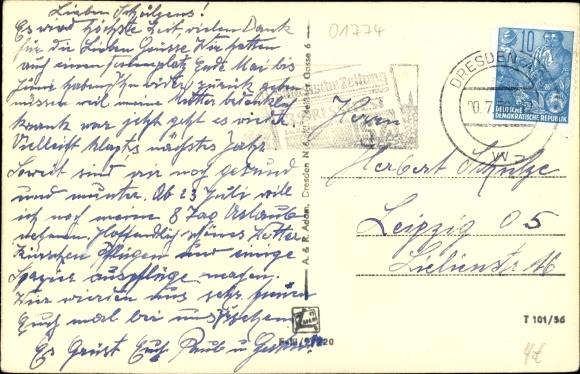 Lieben Schulzens!
Es wird höchste Zeit, vielen Dank
für die Lieben Grüsse Wir hatten
auf einen Ferienplatz Ende Mai bis
Juni haben ihn wieder zurück geben
müssen weil meine Mutter bedenklich
krank war jetzt geht es wieder.
Vielleicht klapts nächstes Jahr
Soweit sind wir noch gesund
und munter. Ab 23 Juli will
ich noch meine 8 Tag Urlaub
nehmen. Hoffendlich schönes Wetter
Kirschen Pflügen und einige
Spazier ausflüge machen.
Wir werden uns sehr freuen
Euch mal bei uns
Es Grüst Euch Paul u
01774
DRESDEN
DEUTSCHE
DEMOKRATISCHE REPUBLIK
10
Zeitung
Herrn
Herbert Schulze
Leipzig O5
Lilienstr 16
A. & R. Adam, Dresden N 6, Gasse 6
T 101/56
4€